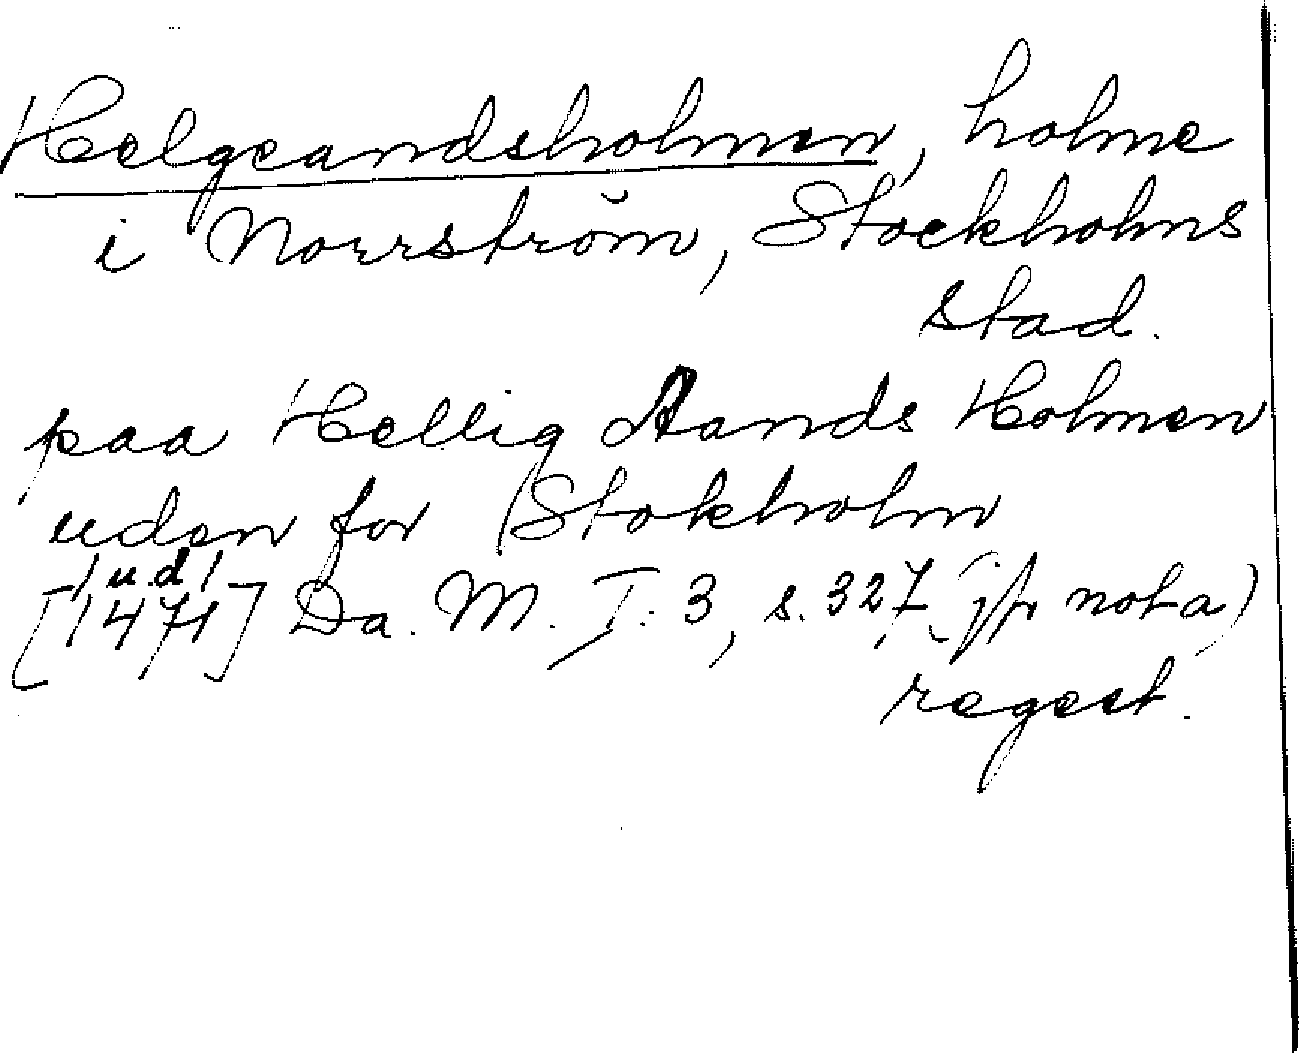 Helgeandsholmen, holme
i Norrström, Stockholms
stad.
paa Hellig Aands Holmen
uden for Stokholm
[1471] (u.d.) Da. M. I: 3, s. 327 (jfr nota)
regest.